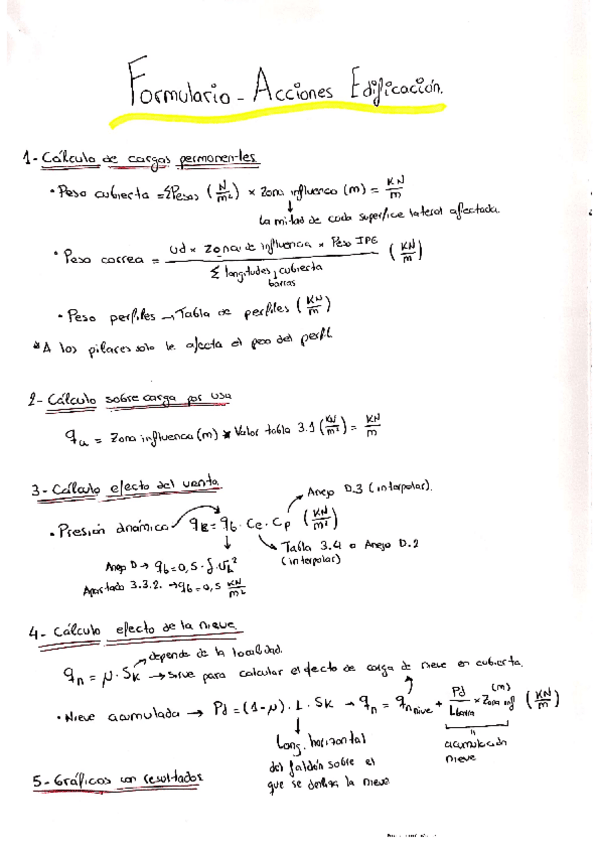 Formulario - Acciones Edificación.
1- Cálculo de cargas permanentes
· Peso cubierta = ΣPesos (N/m²) × Zona influencia (m) = KN/m
↓
La mitad de cada superficie lateral afectada
· Peso correa = (Ud × Zona de influencia × Peso IPE) / (Σ longitudes, cubierta barras) (KN/m)
· Peso perfiles → Tabla de perfiles (KN/m)
* A los pilares solo le afecta el peso del perfil
2- Cálculo sobrecarga por uso
qu = Zona influencia (m) * Valor tabla 3.1 (KN/m²) = KN/m
3- Cálculo efecto del viento
Anejo D.3 (interpolar).
· Presión dinámica qe = qb · Ce · Cp (KN/m²)
Tabla 3.4 o Anejo D.2
(interpolar)
Anejo D → qb = 0,5 · δ · Vb²
Apartado 3.3.2. → qb = 0,5 KN/m²
4- Cálculo efecto de la nieve
depende de la localidad.
qn = μ · Sk → Sirve para calcular el efecto de carga de nieve en cubierta.
· Nieve acumulada → Pd = (1-μ) · L · Sk → qn = qn nieve + Pd/Lbarra × Zona inf (m) (KN/m)
Long. horizontal
del faldón sobre el
que se desliza la nieve
acumulación
nieve
5- Gráficos con resultados